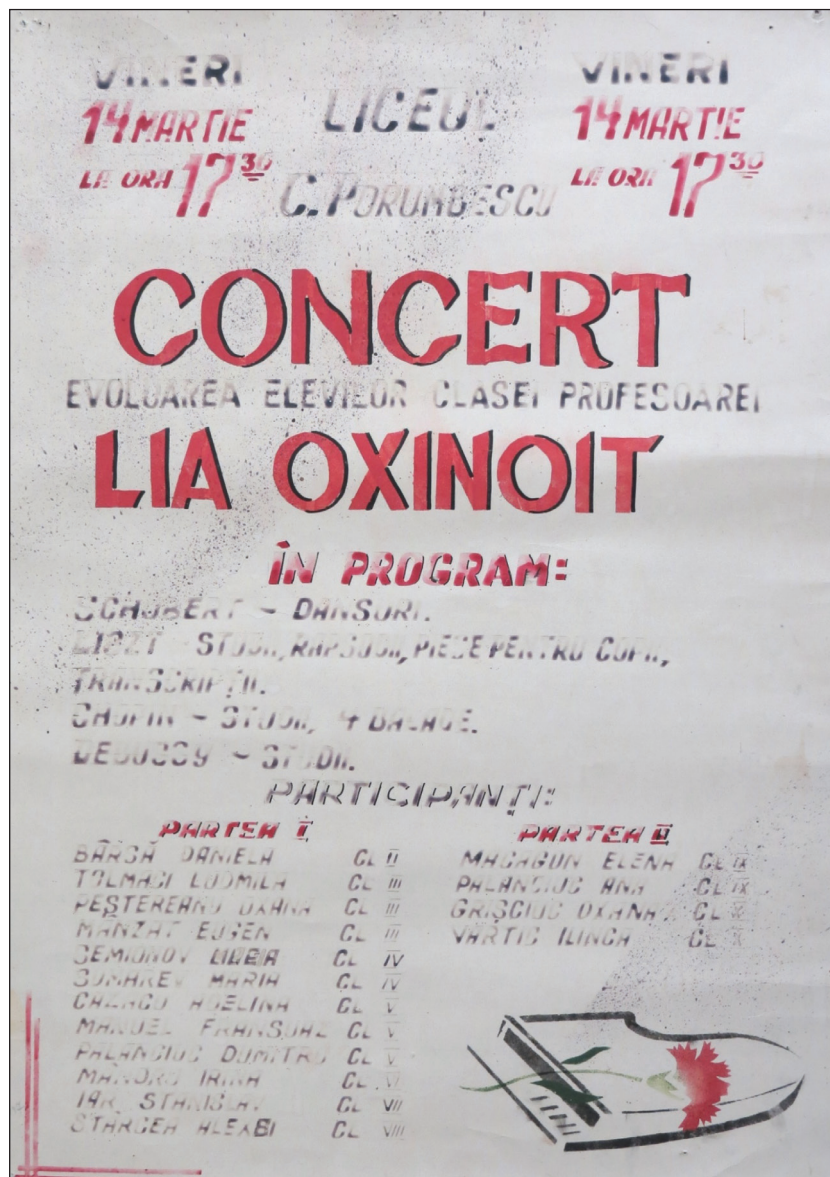 VINERI
14 MARTIE
LA ORA 17 30
LICEUL
C. PORUMBESCU
VINERI
14 MARTIE
LA ORA 17 30
CONCERT
EVOLUAREA ELEVILOR CLASEI PROFESOAREI
LIA OXINOIT
ÎN PROGRAM:
SCHUBERT - DANSURI.
LISZT - STUDII, RAPSODII, PIESE PENTRU COPII,
TRANSCRIPȚII.
CHOPIN - STUDII, 4 BALADE.
DEBUSSY - STUDII.
PARTICIPANȚI:
PARTEA I
BÂRSĂ DANIELA CL II
TOLMACI LUDMILA CL III
PEȘTEREANU OXANA CL III
MÂNZAT EUGEN CL III
SEMIONOV CL IV
MARIA CL IV
ADELINA CL V
MANUEL CL V
PALANCIUC DUMITRU CL V
IRINA CL VI
STANISLAV CL VII
STARCEA ALEXEI CL VIII
PARTEA II
ELENA CL IX
PALANCIUC ANA CL IX
GRIȘCIUC OXANA CL X
VÂRTIC ILINCA CL X